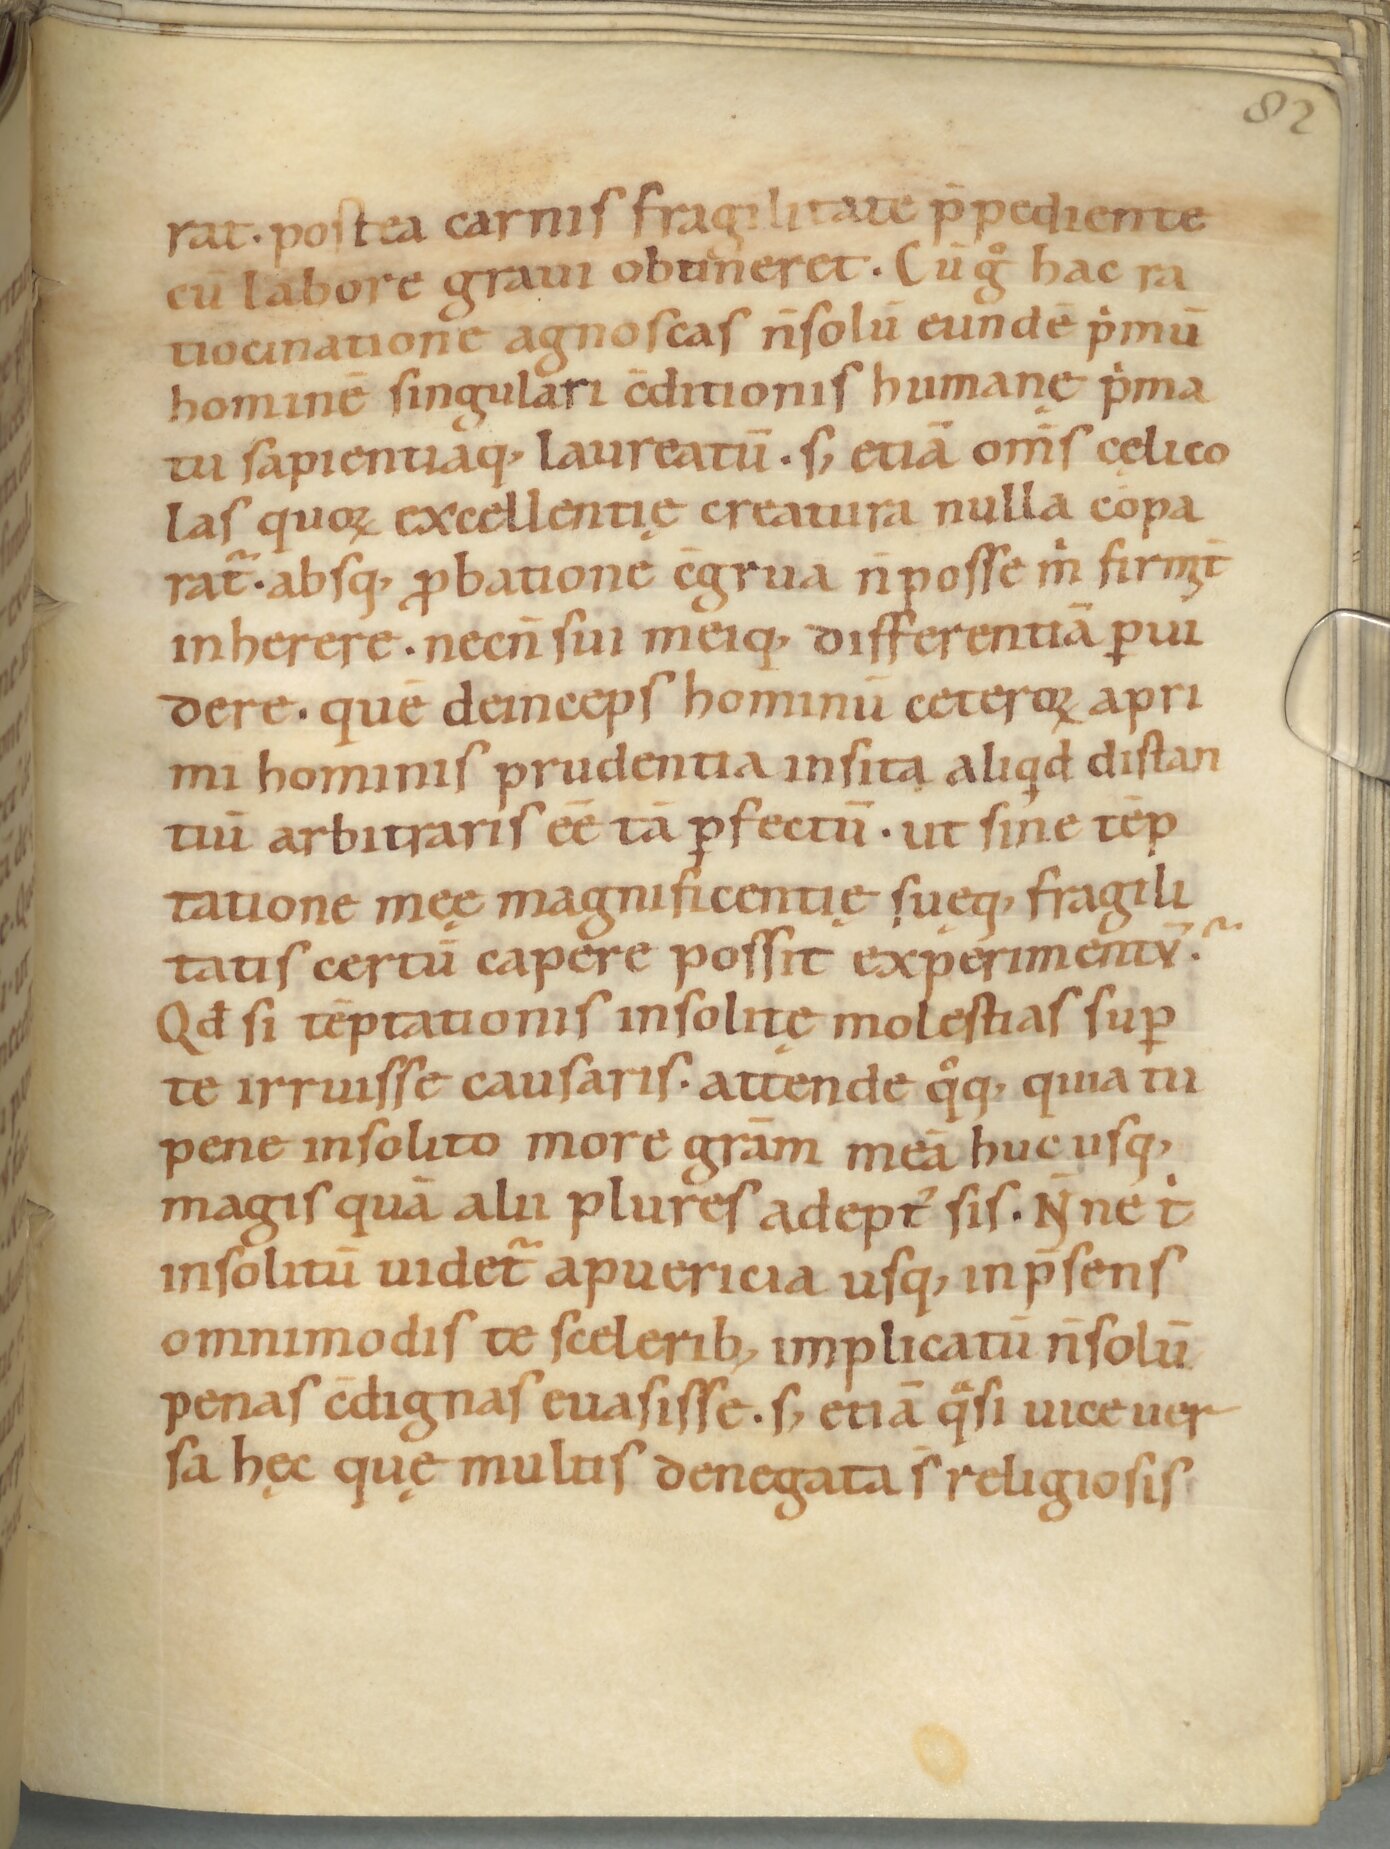 82
rat· postea carnis fragilitate p̄pediente
cū labore graui obtineret· Cū gͦ hac ra
tiocinatione agnoscas n̄ solū eundē pⁱmū
hominē singulari c̄ditionis humanę pⁱma
tu sapientiaq, laureatū· s, etiā om̄s cęlico
las quoꝝ excellentię creatura nulla cōpa
rat̃· absq, ꝓbatione c̄grua n̄ posse mⁱ firmit̄
inherere· nec n̄ sui meiq, differentiā ꝑui
dere· quē deinceps hominū ceteroꝝ a pri
mi hominis prudentia insita aliqd̄ distan
tiū arbitraris eē tā ꝑfectū· ut sine tēp
tatione męę magnificentię suęq, fragili
tatis certū capere possit experimentū·̃
Qd̄ si tēptationis insolitę molestias suꝑ
te irruisse causaris· attende qͦq, quia tu
pene insolito more grām meā huc usq,
magis quā alii plures adeptꝰ sis· N̄ne tⁱ
insolitū uidet̃ a puericia usq, in p̄sens
omnimodis te scelerib, implicatū n̄ solū
penas c̄dignas euasisse· s, etiā qᵃsi uice uer
sa hęc quę multis denegata s̄ religiosis